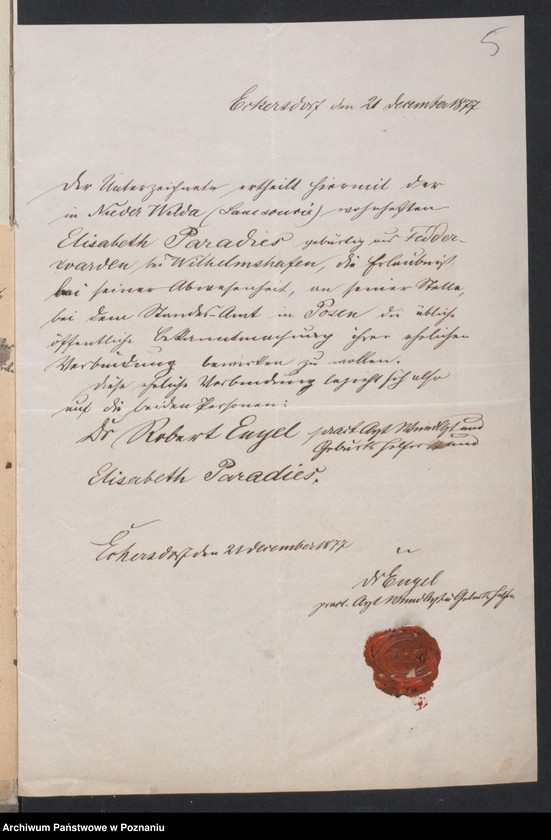 5
Eckersdorf den 21 December 1877
Der Unterzeichnete ertheilt hiermit der
in Nieder Wilda (Sanssouci) wohnhaften
Elisabeth Paradies gebürtig aus Fedder-
warden bei Wilhelmshafen, die Erlaubniß
bei seiner Abwesenheit, an seiner Stelle,
bei dem Standes-Amt in Posen die übliche
öffentliche Bekanntmachung ihrer ehelichen
Verbindung bewirken zu wollen.
Diese eheliche Verbindung bezieht sich also
auf die beiden Personen:
Dr Robert Engel pract. Arzt Wundarzt und
Geburtshelfer und
Elisabeth Paradies.
Eckersdorf den 21 December 1877
Dr Engel
pract. Arzt Wundarzt u Geburtshelfer
Archiwum Państwowe w Poznaniu